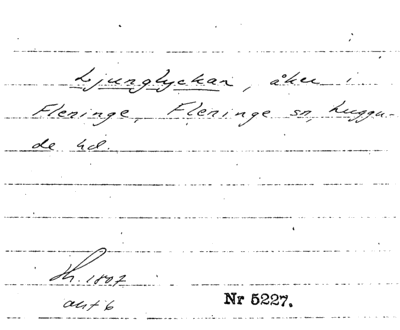 Ljunglyckan, åker i
Fleninge, Fleninge sn, Luggu-
de hd.
Sh. 1807
akt 6
Nr 5227.